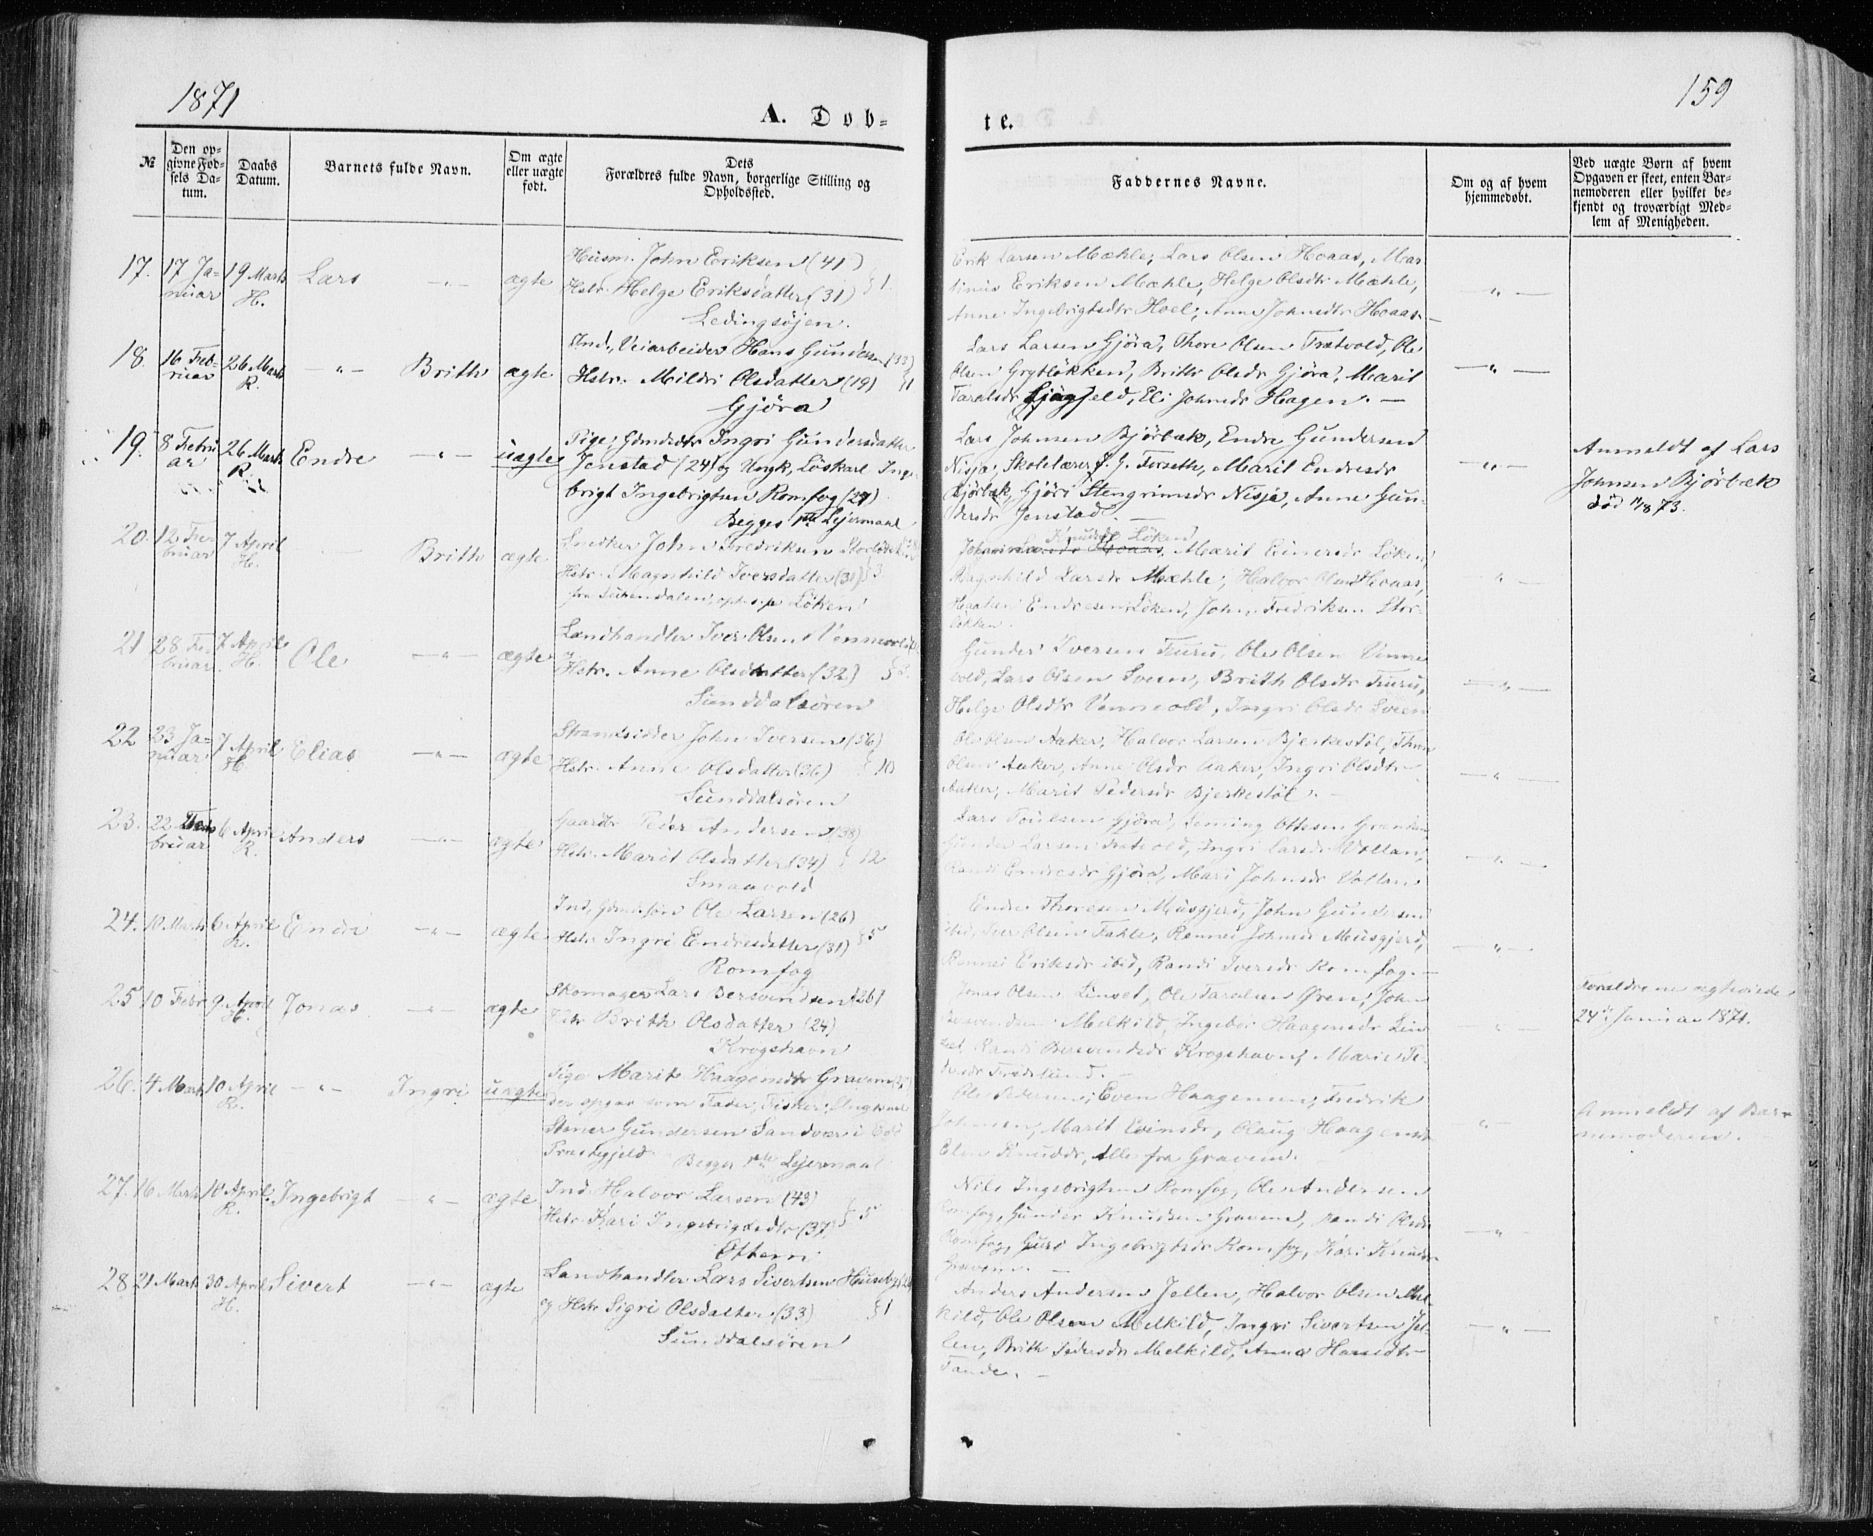 1871
159
A. Døb-
te.
№
Den op-
givne Fød-
sels Da-
tum.
Daabs
Datum.
Barnets fulde Navn.
Om ægte
eller uægte
født.
Dets
Forældres fulde Navn, borgerlige Stilling og
Opholdssted.
Faddernes Navne.
Om og af hvem
hjemmedøbt.
Ved uægte Børn af hvem
Opgaven er skeet, enten Bar-
nemoderen eller hvilket be-
kjendt og troværdigt Med-
lem af Menigheden.
17. 17 Ja-
nuar
19 Marts
H.
Lars
ægte
Husm. John Eriksen (41)
Hstr. Helge Eriksdatter (31) § 1.
Ledingsøjen.
Erik Larsen Mæhle, Lars Olsen Hoaas, Mar-
tinus Eriksen Mæhle, Helge Olsdtr Mæhle,
Anne Ingebrigtsdtr Hoel, Anne Johnsdtr Hoaas
18. 16 Feb-
ruar
26 Marts
R.
Brith
ægte
Ind., Veiarbeider Hans Gundersen (33)
Hstr. Mildri Olsdatter (19) § 1
Gjöra
Lars Larsen Gjöra, Thore Olsen Trætvold, Ole
Olsen Grytløkken, Brith Olsdr Gjöra, Marit
Taralsdr, Eli Johnsdr Hagen.
19. 8 Febru
ar
26 Marts
R.
Endre
uægte
Pige, Gdmdtr Ingri Gundersdatter
Jenstad (24) og Ungk, Löskarl Inge-
brigt Ingebrigtsen Romfog (27)
Begges 1ste Lejermaal
Lars Johnsen Bjørbæk, Endre Gundersen
Nisja, Skolelærer J. G. Forseth, Marit Endresdr
Bjørbæk, Gjöri Stengrimsdr Nisja, Anne Gun-
dersdr Jenstad.
Anmeldt af Lars
Johnsen Bjørbæk
død 1873.
20. 12 Feb
bruar
7 April
H.
Brith
ægte
Snedker John Fredriksen Storløkken
Hstr. Magnhild Iversdatter (31) § 3
Løken
Knudsdr Løken
Hoaas, Marit Einersdr Løken,
Ragnhild Larsdr Mæhle, Halvor Olsen Hoaas,
Haaken Endresen Løken, John Fredriksen Stor-
løkken.
21 28 Fe-
bruar
7 April
H.
Ole
ægte
Landhandler Iver Olsen Vennevold
Hstr. Anne Olsdatter (32) § 3.
Sunddalsøren
Gunder Iversen Furu, Ole Olsen Venne
vold, Lars Olsen Sveen, Brith Olsdtr Furu,
Helge Olsdtr Vennevold, Ingri Olsdr Sveen
22 23 Ja-
nuar
7 April
H
Elias
ægte
Strandsidder John Iversen (56)
Hstr. Anne Olsdatter (36) § 10
Sunddalsøren
Ole Olsen Aaker, Halvor Larsen Bjerkestöl, Thore
Olsen Aaker, Anne Olsdr Aaker, Ingri Olsdtr
Aaker, Marit Pedersdr Bjerkestöl.
23. 22 Feb
bruar
6 April
R.
Anders
ægte
Gaardbr Peder Andersen (38)
Hstr. Marit Olsdatter (34) § 12
Smaavold
Lars Gjöra, Ottesen
Gunder Larsen Trætvold, Ingri Larsdr Vollan,
Randi Endresdr Gjöra, Mari Johnsdr Vollan
24. 10 Marts
6 April
R.
Endre
ægte
Ind, Gdmdssön Ole Larsen (26)
Hstr. Ingri Endresdatter (31) § 5
Romfog
Endre Thoresen Musgjerd, John Gundersen
ibid, Iver Olsen Fahle, Rønnei Johnsdr Musgjerd,
Rønnei Eriksdr ibid, Randi Iversdr Romfog.
25 10 Febr
9 April
H.
Jonas
ægte
Skomager Lars Bersvendsen (26)
Hstr Brith Olsdatter (24)
Krogshavn
Jonas Olsen Linset, Ole Taralsen Øren, John
Bersvendsen Melkild, Ingebor Haagensdr Lin-
set, Randi Bersvendsdr Krogshavn, Marie Pe-
dersdr
Forældrene ægteviede
24de Januar 1871.
26. 4 Marts
10 April
R.
Ingri
uægte
Pige Marit Haagensdtr Gravem
der opgav som Fader, Fisker, Ungkarl
Stener Gundersen Sandvær i
Præstegjeld Begges 1ste Lejermaal
Ole Pedersen, Even Haagensen, Fredrik
Johnsen, Marit Evensdr, Olaug Haagensdr
Elen Knudsdr, Alle fra Gravem.
Anmeldt af Bar-
nemoderen.
27. 16 Marts
10 April
R.
Ingebrigt
ægte
Ind Halvor Larsen (43)
Hstr. Kari Ingebrigtsdtr (37) § 5
Ottem
Nils Ingebrigtsen Romfog, Ole Andersen
Romfog, Gunder Knudsen Gravem, Randi Olsdr
Romfog, Guri Ingebrigtsdr Romfog, Kari Knudsdr
Gravem.
28 21 Marts
30 April
H.
Sivert
ægte
Landhandler Lars Sivertsen Huseby
og Hstr Sigri Olsdatter (33) § 1
Sunddalsøren
Anders Andersen Jellen, Halvor Olsen Mel-
kild, Ole Olsen Melkild, Ingri Sivertsen Jel-
len, Brith Pedersdr Melkild, Anne Hansdtr
Tande.